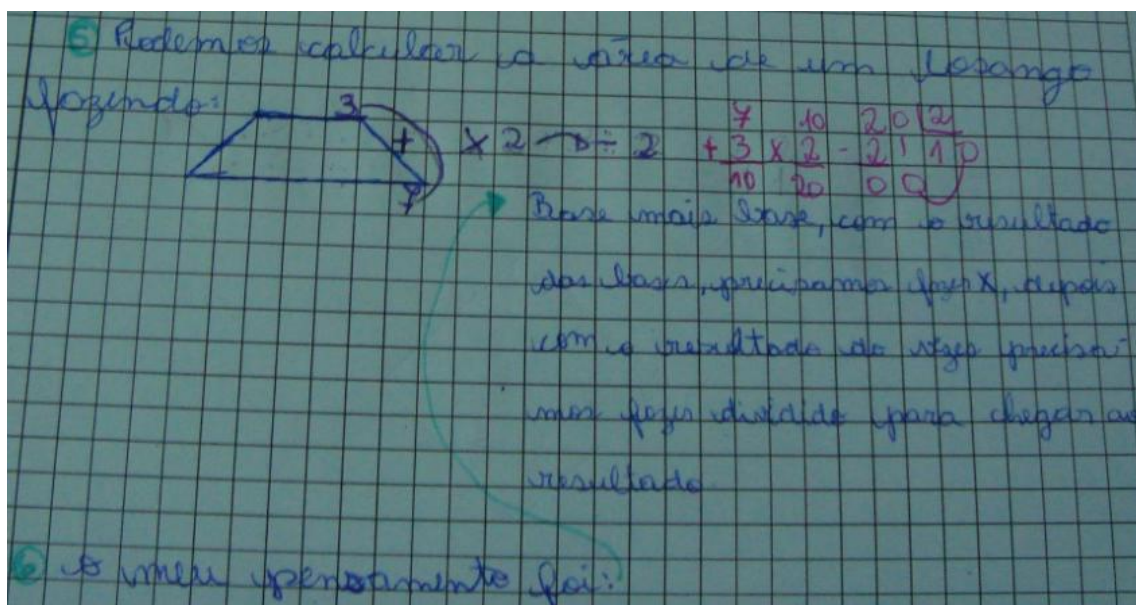 5 Podemos calcular a área de um losango
fazendo:
3
+
7
× 2 → ÷ 2
7 10 20 2
+ 3 × 2 - 2 10
10 20 00
Base mais base, com o resultado
das bases, precisamos fazer X, depois
com o resultado do vezes precisa-
mos fazer dividido para chegar ao
resultado
6 o meu pensamento foi: